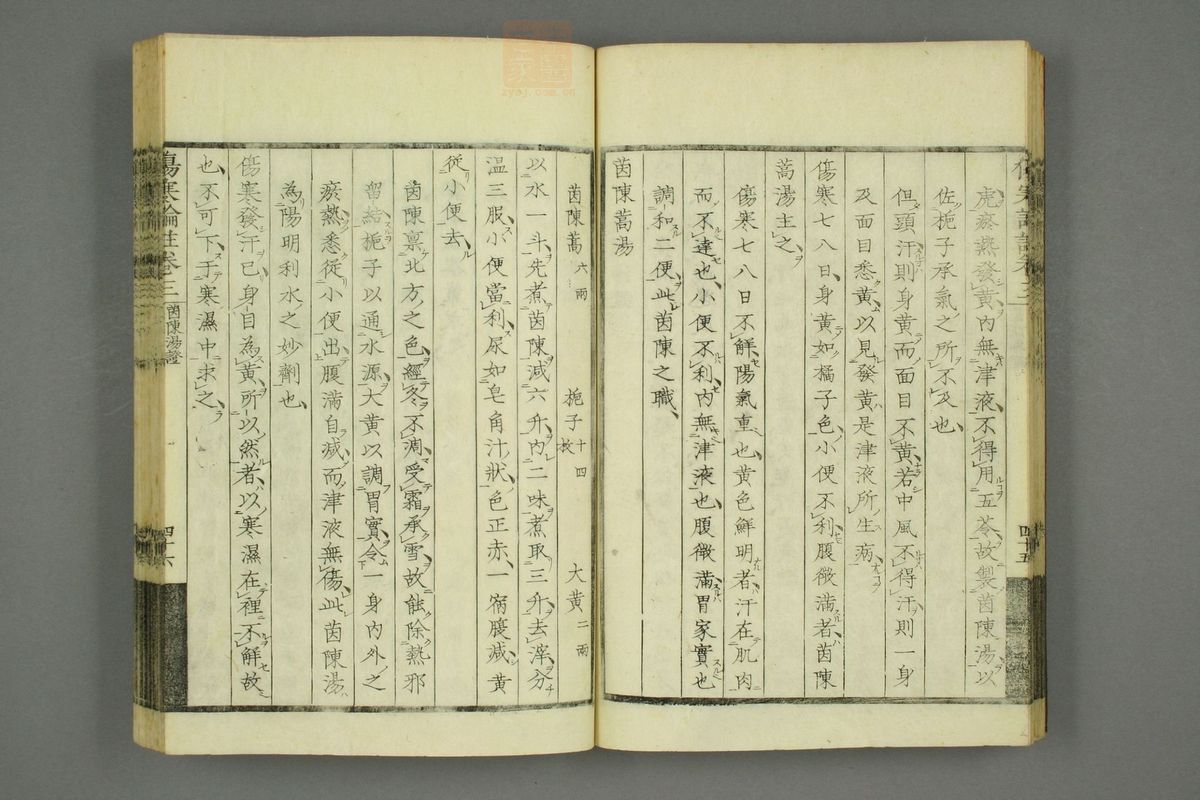 虎瘀熱發黃內無津液不得用五苓故製茵陳湯以
佐梔子承氣之所不及也
但頭汗則身黃而面目不黃若中風不得汗則一身
及面目悉黃以見發黃是津液所生病
傷寒七八日身黃如橘子色小便不利腹微滿者茵陳
蒿湯主之
傷寒七八日不解陽氣重也黃色鮮明者汗在肌肉
而不達也小便不利內無津液也腹微滿胃家實也
調和二便此茵陳之職
茵陳蒿湯
茵陳蒿六兩 梔子十四枚 大黃二兩
以水一斗先煮茵陳減六升內二味煮取三升去滓分
溫三服小便當利尿如皂角汁狀色正赤一宿腹減黃
從小便去
茵陳稟北方之色經冬不凋受霜承雪故能除熱邪
留結梔子以通水源大黃以調胃實令一身內外之
瘀熱悉從小便出腹滿自減而津液無傷此茵陳湯
為陽明利水之妙劑也
傷寒發汗已身目為黃所以然者以寒濕在裡不解故
也不可下于寒濕中求之
傷寒論註卷三 茵陳湯證 四十六
四十五
zysj.com.cn